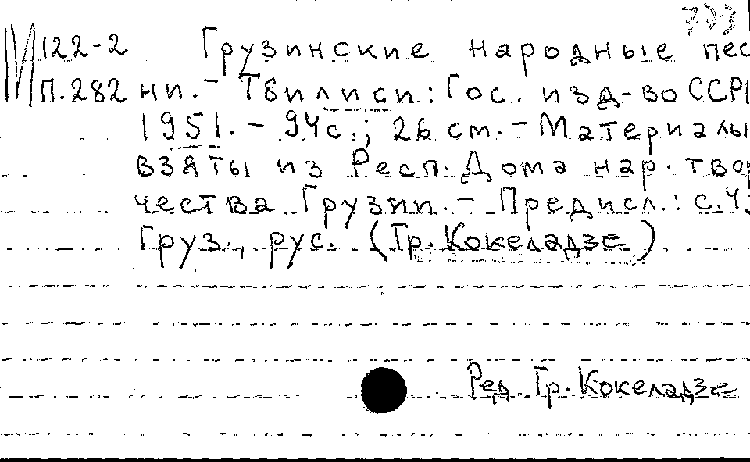 733
М 122-2 Грузинские народные пес
П.282 ни. - Тбилиси: Гос. изд-во ССР
1951. - 94с.; 26 см. - Материалы
взяты из Респ. Дома нар. твор
чества Грузии. - Предисл.: с.4.
Груз., рус. (Гр. Кокеладзе)
Ред. Гр. Кокеладзе